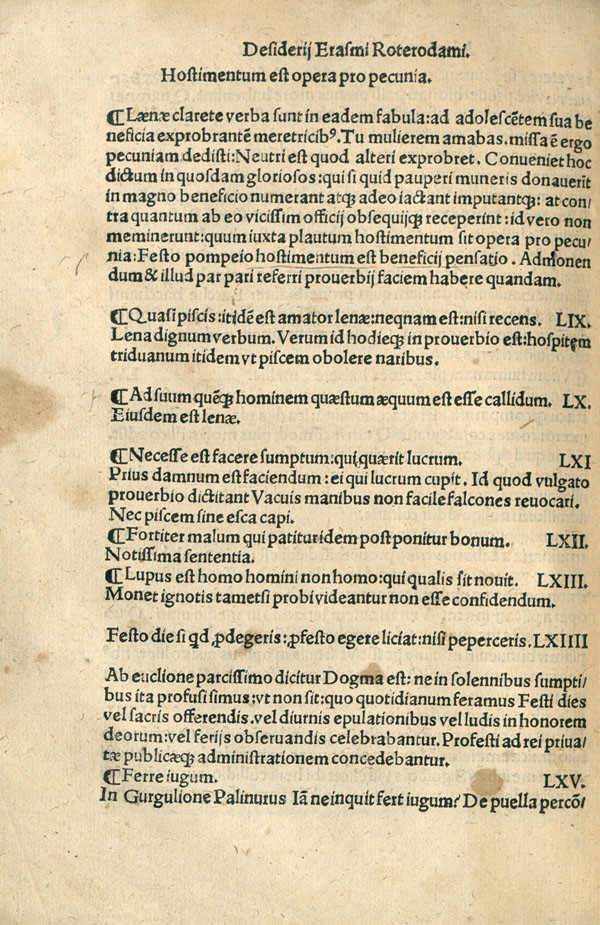 Desiderij Erasmi Roterodami.
Hostimentum est opera pro pecunia.
¶Lænæ clarete verba sunt in eadem fabula:ad adolescẽtem sua be
neficia exprobrantẽ meretricibꝰ.Tu mulierem amabas.missa ẽ ergo
pecuniam dedisti:Neutri est quod alteri exprobret. Conueniet hoc
dictum in quosdam gloriosos:qui si quid pauperi muneris donauerit
in magno beneficio numerant atqꝫ adeo iactant imputantqꝫ: at con/
tra quantum ab eo vicissim officij obsequijqꝫ receperint:id vero non
meminerunt:quum iuxta plautum hostimentum sit opera pro pecu/
nia:Festo pompeio hostimentum est beneficij pensatio. Admonen
dum& illud par pari referri prouerbij faciem habere quandam.
¶Quasi piscis:itidẽ est amator lenæ:neqnam est:nisi recens. LIX.
Lena dignum verbum. Verum id hodieqꝫ in prouerbio est:hospitem
triduanum itidem vt piscem obolere naribus.
¶Ad suum quẽqꝫ hominem quæstum æquum est esse callidum. LX.
Eiusdem est lenæ.
¶Necesse est facere sumptum:qui quærit lucrum. LXI
Prius damnum est faciendum: ei qui lucrum cupit. Id quod vulgato
prouerbio dictitant Vacuis manibus non facile falcones reuocari.
Nec piscem sine esca capi.
¶Fortiter malum qui patitur idem post ponitur bonum. LXII.
Notissima sententia.
¶Lupus est homo homini non homo:qui qualis sit nouit. LXIII.
Monet ignotis tametsi probi videantur non esse confidendum.
Festo die si qd ꝓdegeris:ꝓfesto egere liciat:nisi peperceris. LXIIII
Ab euclione parcissimo dicitur Dogma est: ne in solennibus sumpti/
bus ita profusi simus:vt non sit:quo quotidianum feramus Festi dies
vel sacris offerendis.vel diurnis epulationibus vel ludis in honorem
deorum:vel ferijs obseruandis celebrabantur. Profesti ad rei priua/
tæ publicæqꝫ administrationem concedebantur.
¶Ferre iugum. LXV.
In Gurgulione Palinurus Iã ne inquit fert iugum? De puella percõ/